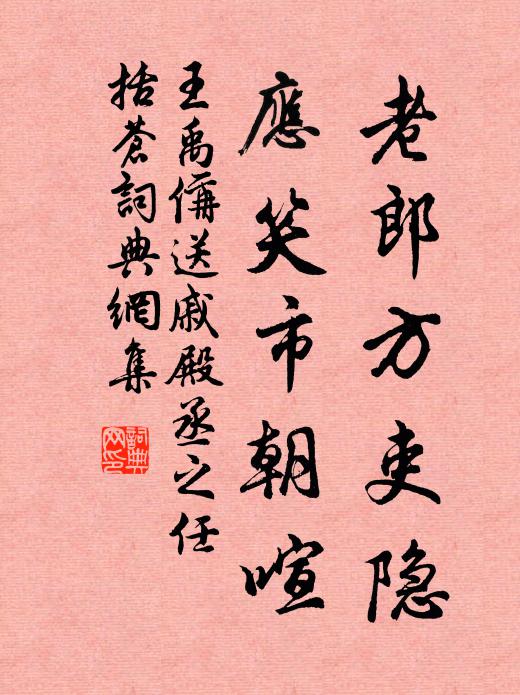 老郎方吏隐
應笑市朝喧
王禹偁送戚殿丞之任
括蒼詞典網集
詞典网印